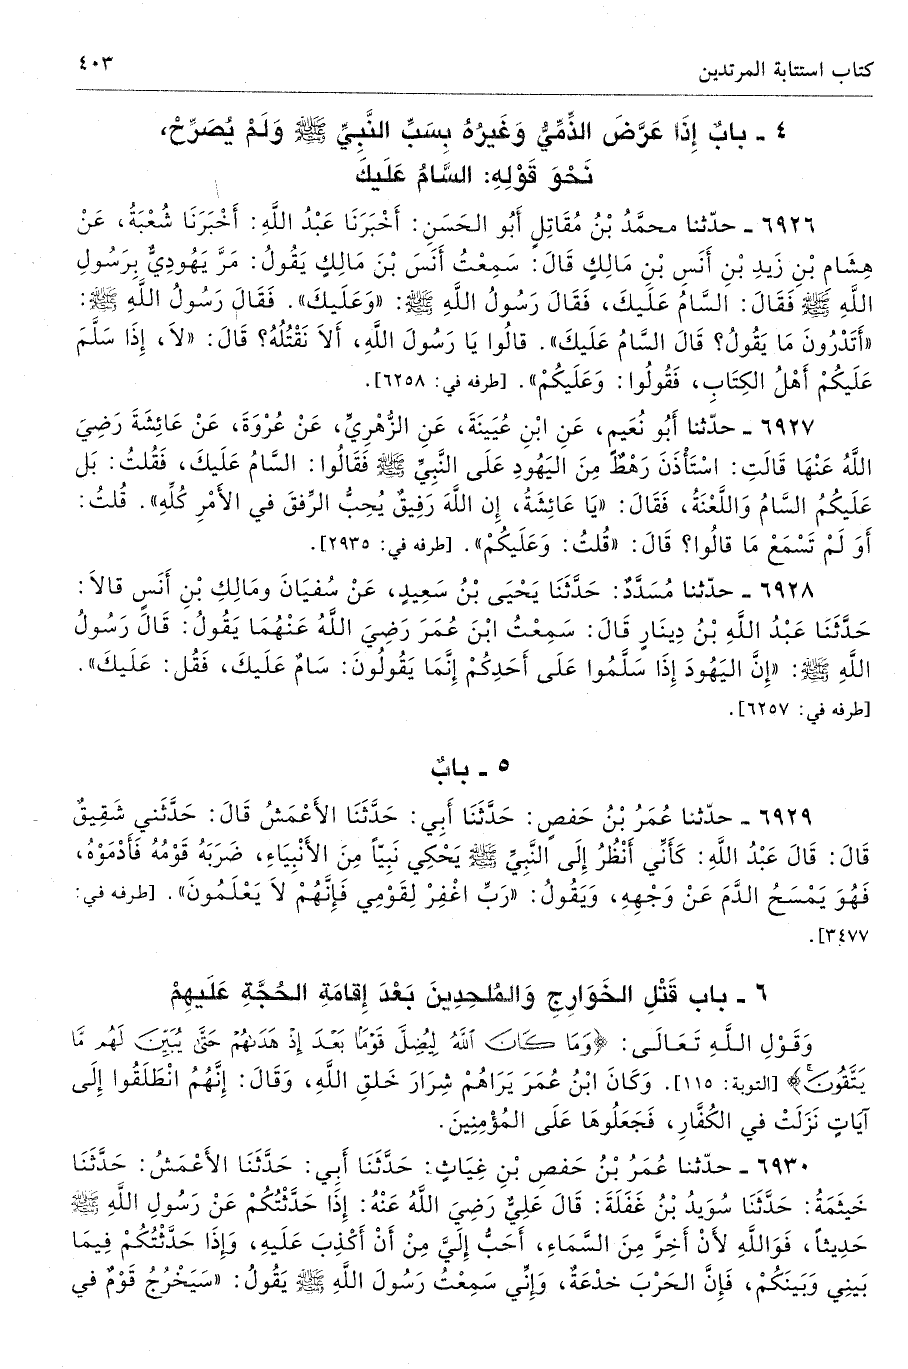 كتاب استتابة المرتدين ٤٠٣
٤ ـ بابٌ إِذَا عَرَّضَ الذِّمِّيُّ وَغَيرُهُ بِسَبِّ النَّبِيِّ ﷺ وَلَمْ يُصَرِّحْ،
نَحْوَ قَوْلِهِ: السَّامُ عَلَيكَ
٦٩٢٦ ـ حدّثنا محمَّدُ بْنُ مُقَاتِلٍ أَبُو الحَسَنِ: أَخْبَرَنَا عَبْدُ اللَّهِ: أَخْبَرَنَا شُعْبَةُ، عَنْ
هِشَامِ بْنِ زَيدِ بْنِ أَنَسِ بْنِ مَالِكٍ قَالَ: سَمِعْتُ أَنَسَ بْنَ مَالِكٍ يَقُولُ: مَرَّ يَهُودِيٌّ بِرَسُولِ
اللَّهِ ﷺ فَقَالَ: السَّامُ عَلَيكَ، فَقَالَ رَسُولُ اللَّهِ ﷺ: «وَعَلَيكَ». فَقَالَ رَسُولُ اللَّهِ ﷺ:
«أَتَدْرُونَ مَا يَقُولُ؟ قَالَ السَّامُ عَلَيكَ». قالُوا يَا رَسُولَ اللَّهِ، أَلاَ نَقْتُلُهُ؟ قَالَ: «لاَ، إِذَا سَلَّمَ
عَلَيكُمْ أَهْلُ الكِتَابِ، فَقُولُوا: وَعَلَيكُمْ». [طرفه في: ٦٢٥٨].
٦٩٢٧ ـ حدّثنا أَبُو نُعَيمٍ، عَنِ ابْنِ عُيَينَةَ، عَنِ الزُّهْرِيِّ، عَنْ عُرْوَةَ، عَنْ عَائِشَةَ رَضِيَ
اللَّهُ عَنْهَا قَالَتِ: اسْتَأْذَنَ رَهْطٌ مِنَ اليَهُودِ عَلَى النَّبِيِّ ﷺ فَقَالُوا: السَّامُ عَلَيكَ، فَقُلتُ: بَل
عَلَيكُمُ السَّامُ وَاللَّعْنَةُ، فَقَالَ: «يَا عَائِشَةُ، إِن اللَّهَ رَفِيقٌ يُحِبُّ الرِّفقَ في الأَمْرِ كُلِّهِ». قُلتُ:
أَوَ لَمْ تَسْمَعْ مَا قالُوا؟ قَالَ: «قُلتُ: وَعَلَيكُمْ». [طرفه في: ٢٩٣٥].
٦٩٢٨ ـ حدّثنا مُسَدَّدٌ: حَدَّثَنَا يَحْيَى بْنُ سَعِيدٍ، عَنْ سُفيَانَ ومَالِكِ بْنِ أَنَسٍ قالاَ:
حَدَّثَنَا عَبْدُ اللَّهِ بْنُ دِينَارٍ قَالَ: سَمِعْتُ ابْنَ عُمَرَ رَضِيَ اللَّهُ عَنْهُمَا يَقُولُ: قَالَ رَسُولُ
اللَّهِ ﷺ: «إِنَّ اليَهُودَ إِذَا سَلَّمُوا عَلَى أَحَدِكُمْ إِنَّمَا يَقُولُونَ: سَامٌ عَلَيكَ، فَقُل: عَلَيكَ».
[طرفه في: ٦٢٥٧].
٥ ـ بابٌ
٦٩٢٩ ـ حدّثنا عُمَرُ بْنُ حَفصٍ: حَدَّثَنَا أَبِي: حَدَّثَنَا الأَعْمَشُ قَالَ: حَدَّثَني شَقِيقٌ
قَالَ: قَالَ عَبْدُ اللَّهِ: كَأَنِّي أَنْظُرُ إِلَى النَّبِيِّ ﷺ يَحْكِي نَبِيّاً مِنَ الأَنْبِيَاءِ، ضَرَبَهُ قَوْمُهُ فَأَدْمَوْهُ،
فَهُوَ يَمْسَحُ الدَّمَ عَنْ وَجْهِهِ، وَيَقُولُ: «رَبِّ اغْفِرْ لِقَوْمِي فَإِنَّهُمْ لاَ يَعْلَمُونَ». [طرفه في:
٣٤٧٧].
٦ ـ باب قَتْلِ الخَوَارِجِ وَالمُلحِدِينَ بَعْدَ إِقامَةِ الحُجَّةِ عَلَيهِمْ
وَقَوْلِ اللَّهِ تَعَالَى: ﴿وَمَا كَانَ اللَّهُ لِيُضِلَّ قَوْمًا بَعْدَ إِذْ هَدَىٰهُمْ حَتَّىٰ يُبَيِّنَ لَهُم مَّا
يَتَّقُونَ﴾ [التوبة: ١١٥]. وَكَانَ ابْنُ عُمَرَ يَرَاهُمْ شِرَارَ خَلقِ اللَّهِ، وَقَالَ: إِنَّهُمُ انْطَلَقُوا إِلَى
آيَاتٍ نَزَلَتْ في الكُفَّارِ، فَجَعَلُوهَا عَلَى المُؤْمِنِينَ.
٦٩٣٠ ـ حدّثنا عُمَرُ بْنُ حَفصِ بْنِ غِيَاثٍ: حَدَّثَنَا أَبِي: حَدَّثَنَا الأَعْمَشُ: حَدَّثَنَا
خَيثَمَةُ: حَدَّثَنَا سُوَيدُ بْنُ غَفَلَةَ: قَالَ عَلِيٌّ رَضِيَ اللَّهُ عَنْهُ: إِذَا حَدَّثْتُكُمْ عَنْ رَسُولِ اللَّهِ ﷺ
حَدِيثاً، فَوَاللَّهِ لأَنْ أَخِرَّ مِنَ السَّمَاءِ، أَحَبُّ إِلَيَّ مِنْ أَنْ أَكْذِبَ عَلَيهِ، وَإِذَا حَدَّثْتُكُمْ فِيمَا
بَينِي وَبَينَكُمْ، فَإِنَّ الحَرْبَ خدْعَةٌ، وَإِنِّي سَمِعْتُ رَسُولَ اللَّهِ ﷺ يَقُولُ: «سَيَخْرُجُ قَوْمٌ في